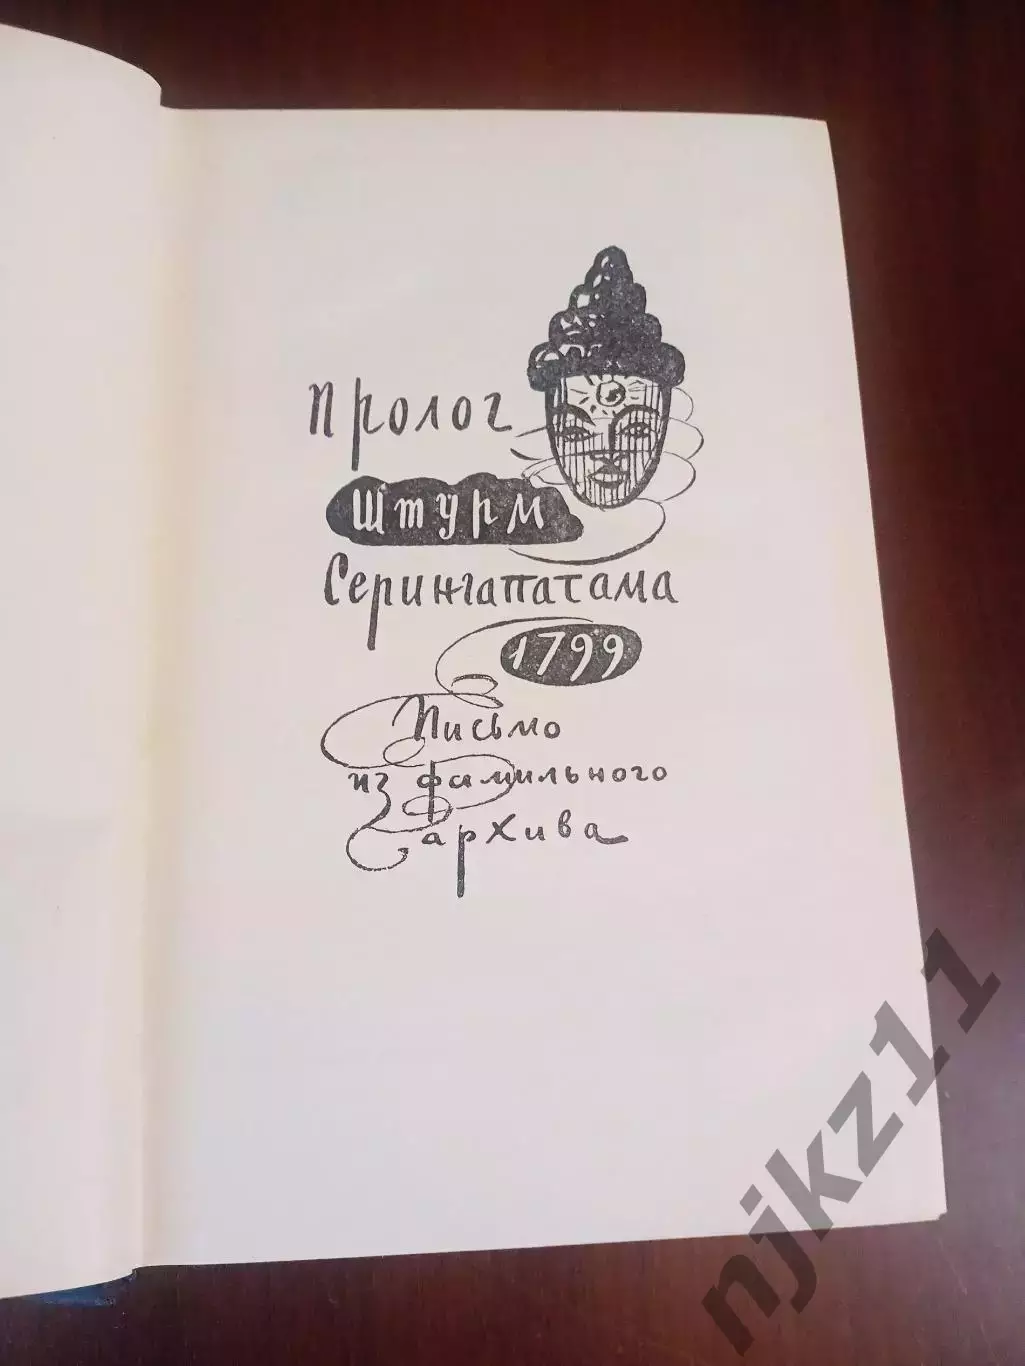 Пролог
Штурм
Серингапатама
1799
Письмо
из фамильного
архива
njkz11